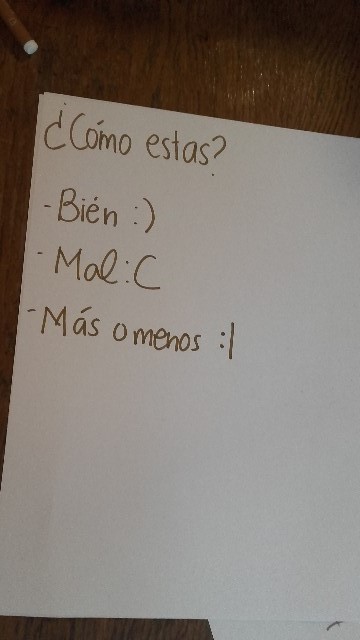 ¿Cómo estas?
- Bién :)
- Mal :C
- Más o menos :|